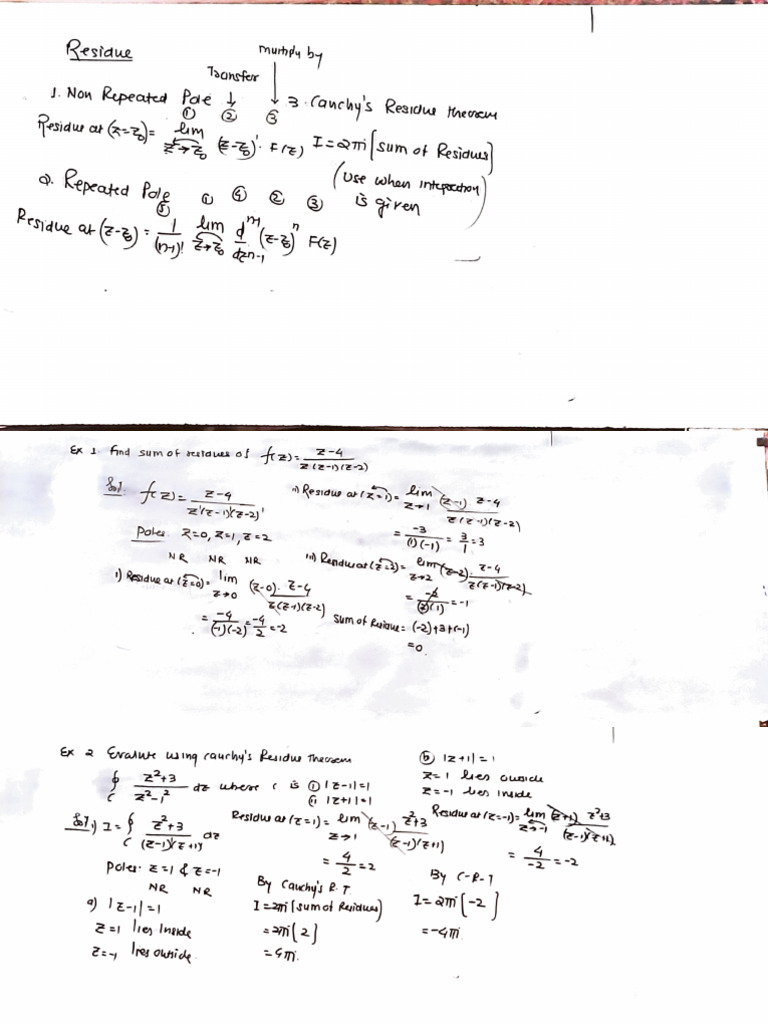 Residue
Multiply by
Transfer
1. Non Repeated Pole ↓ ↓ 3. Cauchy's Residue theorem
① ② ③
Residue at (z=z₀) = lim z→z₀ (z-z₀)' . F(z) I = 2πi [sum of Residues]
(Use when integration is given)
2. Repeated Pole
⑤ ① ④ ② ③
Residue at (z-z₀) = 1/(n-1)! lim z→z₀ d^(n-1)/dz^(n-1) (z-z₀)^n F(z)
Ex 1. Find sum of residues of f(z) = z-4 / z(z-1)(z-2)
Sol. f(z) = z-4 / z'(z-1)'(z-2)'
Poles: z=0, z=1, z=2
NR NR NR
i) Residue at (z=0) = lim z→0 (z-0) . z-4 / z(z-1)(z-2)
= -4/(-1)(-2) = -4/2 = -2
ii) Residue at (z=1) = lim z→1 (z-1) z-4 / z(z-1)(z-2)
= -3/(1)(-1) = 3/1 = 3
iii) Residue at (z=2) = lim z→2 (z-2) . z-4 / z(z-1)(z-2)
= -2/(2)(1) = -1
Sum of Residue = (-2)+3+(-1)
= 0.
Ex 2 Evaluate using Cauchy's Residue theorem
∮C z²+3 / z²-1² dz where C is ① |z-1|=1
ⅱ |z+1|=1
Sol. 1) I = ∮C z²+3 / (z-1)'(z+1)' dz
Poles: z=1 & z=-1
NR NR
a) |z-1|=1
z=1 lies inside
z=-1 lies outside.
Residue at (z=1) = lim z→1 (z-1) z²+3 / (z-1)(z+1)
= 4/2 = 2
By Cauchy's R.T.
I = 2πi [sum of Residues]
= 2πi [2]
= 4πi.
b) |z+1|=1
z=1 lies outside
z=-1 lies inside
Residue at (z=-1) = lim z→-1 (z+1) z²+3 / (z-1)(z+1)
= 4/-2 = -2
By C-R-T
I = 2πi [-2]
= -4πi